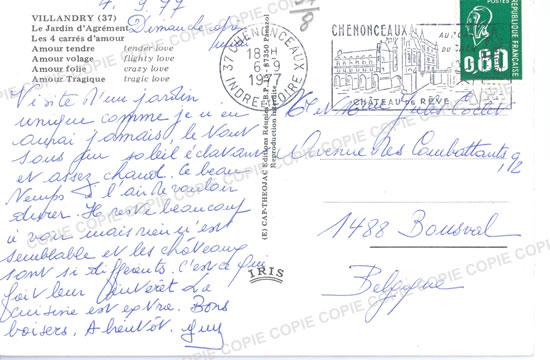 4.9.77
VILLANDRY (37)
Le Jardin d'Agrément
Les 4 carrés d'amour
Amour tendre tender love
Amour volage flighty love
Amour folie crazy love
Amour Tragique tragic love
Dimanche après
midi
Visite d'un jardin
unique comme je n'en
aurai jamais, le tout
sous un soleil éclatant
et assez chaud. Le beau
temps a l'air de vouloir
durer. Il reste beaucoup
à voir mais rien n'est
semblable et les châteaux
sont si différents. C'est ce qui
fait leur intérêt. La
cuisine est extra. Bons
baisers. A bientôt. Guy
(E) CAP-THEOJAC Editions
Reproduction interdite
IRIS
37 CHENONCEAUX
8 H
9
1977
INDRE ET LOIRE
CHENONCEAUX
CHÂTEAU DE RÊVE
POSTES
0,80
REPUBLIQUE FRANÇAISE
et Mme Jules Collet
Avenue des Combattants,
92
1488 Bousval
Belgique
COPIE COPIE COPIE COPIE